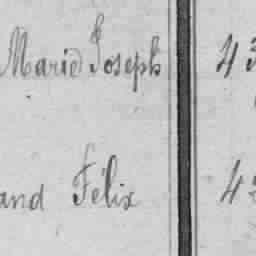 Marie Joseph 43
and Félix 42